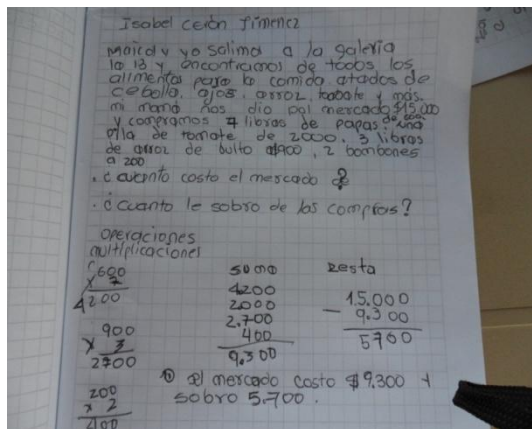 Isabel Cerón Jimenez
Maicol y yo salimo a la galeria
la 13 y encontramos de todos los
alimentos para la comida atados de
cebolla, ajos, arroz, tomate y más.
mi mamá nos dio pal mercado $15.000
y compramos 7 libras de papas de 600, una
de tomate de 2000, 3 libras
de arroz de bulto a 900, 2 bombones
a 200
. ¿cuanto costo el mercado?
. ¿cuanto le sobro de las compras?
operaciones
multiplicaciones
600
x 7
4200
900
x 3
2700
200
x 2
400
suma
4200
2000
2.700
400
9.300
Resta
15.000
- 9.300
5700
el mercado costo $9.300 y
sobro 5.700.